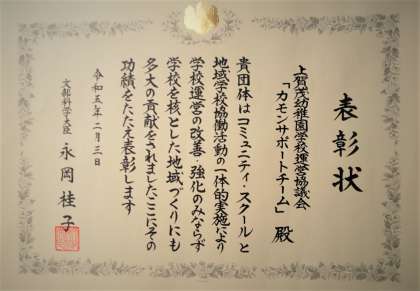 表彰状
上賀茂幼稚園学校運営協議会
「カモンサポートチーム」 殿
貴団体はコミュニティ・スクールと
地域学校協働活動の一体的実施により
学校運営の改善・強化のみならず
学校を核とした地域づくりにも
多大の貢献をされましたここにその
功績をたたえ表彰します
令和五年二月三日
文部科学大臣 永岡桂子